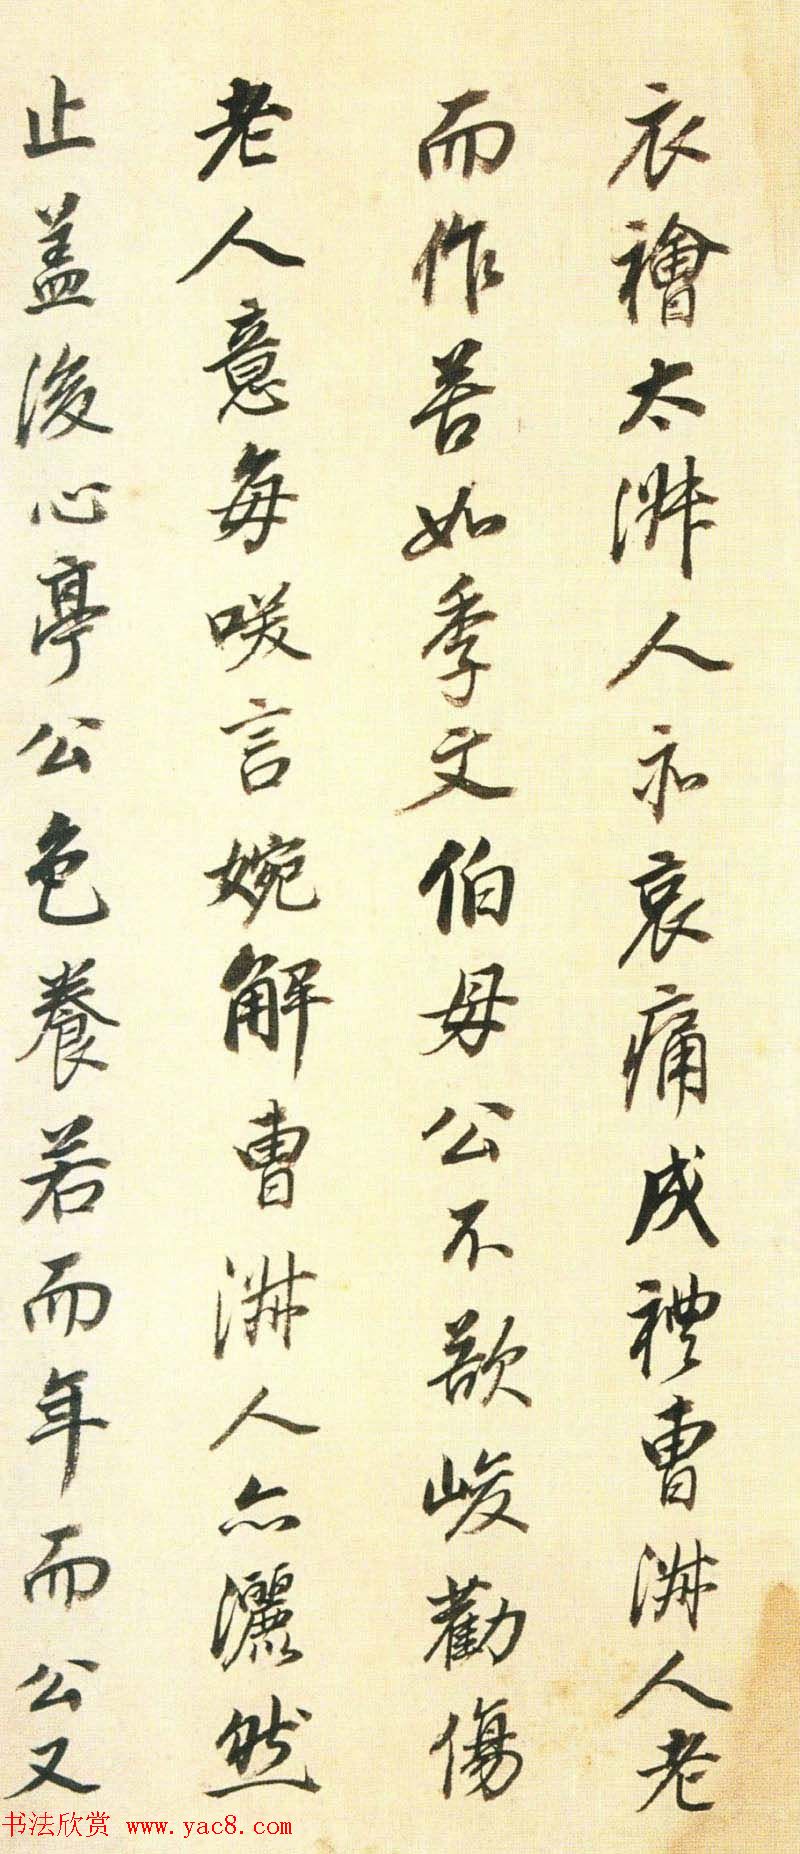 衣襘太淑人亦哀痛成禮曹淑人老
而作苦如季文伯母公不欲峻勸傷
老人意每咲言婉解曹淑人亦灑然
止盖後心亭公色養若而年而公又
书法欣赏 www.yac8.com